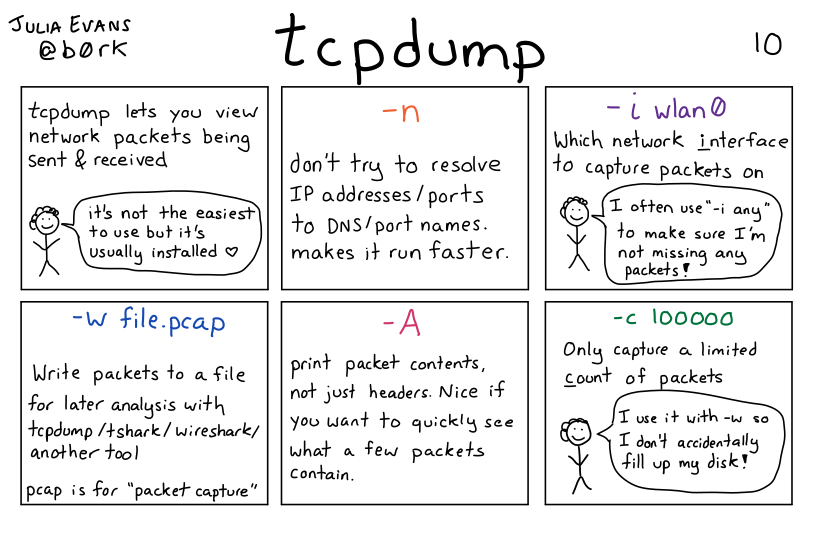 JULIA EVANS
@b0rk
tcpdump
10
tcpdump lets you view
network packets being
sent & received
it's not the easiest
to use but it's
usually installed ♡
-n
don't try to resolve
IP addresses/ports
to DNS/port names.
makes it run faster.
-i wlan0
Which network interface
to capture packets on
I often use "-i any"
to make sure I'm
not missing any
packets!
-w file.pcap
Write packets to a file
for later analysis with
tcpdump/tshark/wireshark/
another tool
pcap is for "packet capture"
-A
print packet contents,
not just headers. Nice if
you want to quickly see
what a few packets
contain.
-c 100000
Only capture a limited
count of packets
I use it with -w so
I don't accidentally
fill up my disk!